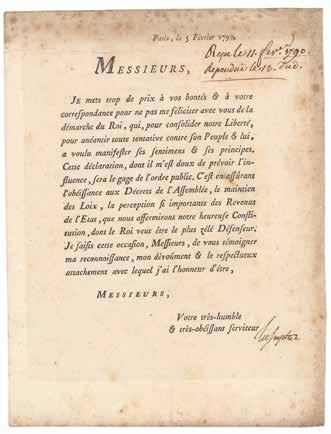 Paris, le 5 Février 1790.
Reçu le 11. fev.r 1790.
Repondüe le 12. dud.
MESSIEURS,
JE mets trop de prix à vos bontés & à votre
correspondance pour ne pas me féliciter avec vous de la
démarche du Roi, qui, pour consolider notre Liberté,
pour anéantir toute tentative contre son Peuple & lui,
a voulu manifester ses sentimens & ses principes.
Cette déclaration, dont il m'est doux de prévoir l'in-
fluence, sera le gage de l'ordre public. C'est en assurant
l'obéissance aux Décrets de l'Assemblée, le maintien
des Loix, la perception si importante des Revenus
de l'Etat, que nous affermirons notre heureuse Consti-
tution, dont le Roi veut être le plus zélé Défenseur.
Je saisis cette occasion, Messieurs, de vous témoigner
ma reconnoissance, mon dévoûment & le respectueux
attachement avec lequel j'ai l'honneur d'être,
MESSIEURS,
Votre très-humble
& très-obéissant serviteur